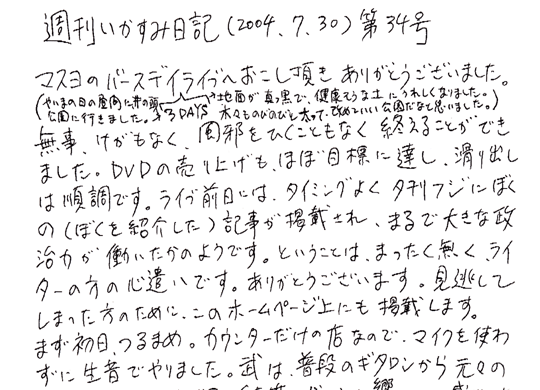 週刊いかすみ日記(2004、7、30)第34号
マスヨのバースデイライヴへおこし頂き ありがとうございました。
(やいまの日の昼間に井の頭 3DAYS 地面が真っ黒で、健康そうな土にうれしくなりました。
公園に行きました。木々ものびのびと太って、改めていい公園だなと思いました。)
無事、けがもなく、風邪をひくこともなく 終えることができ
ました。DVDの売り上げも、ほぼ目標に達し、滑り出し
は順調です。ライヴ前日には、タイミングよく 夕刊フジにぼく
の(ぼくを紹介した)記事が掲載され、まるで大きな政
治力が働いたかのようです。ということは、まったく無く、ライ
ターの方の心遣いです。ありがとうございます。見逃して
しまった方のために、このホームページ上にも掲載します。
まず初日、つるまめ。カウンターだけの店なので、マイクを使わ
ずに生音でやりました。武は、普段のギタロンから元々の